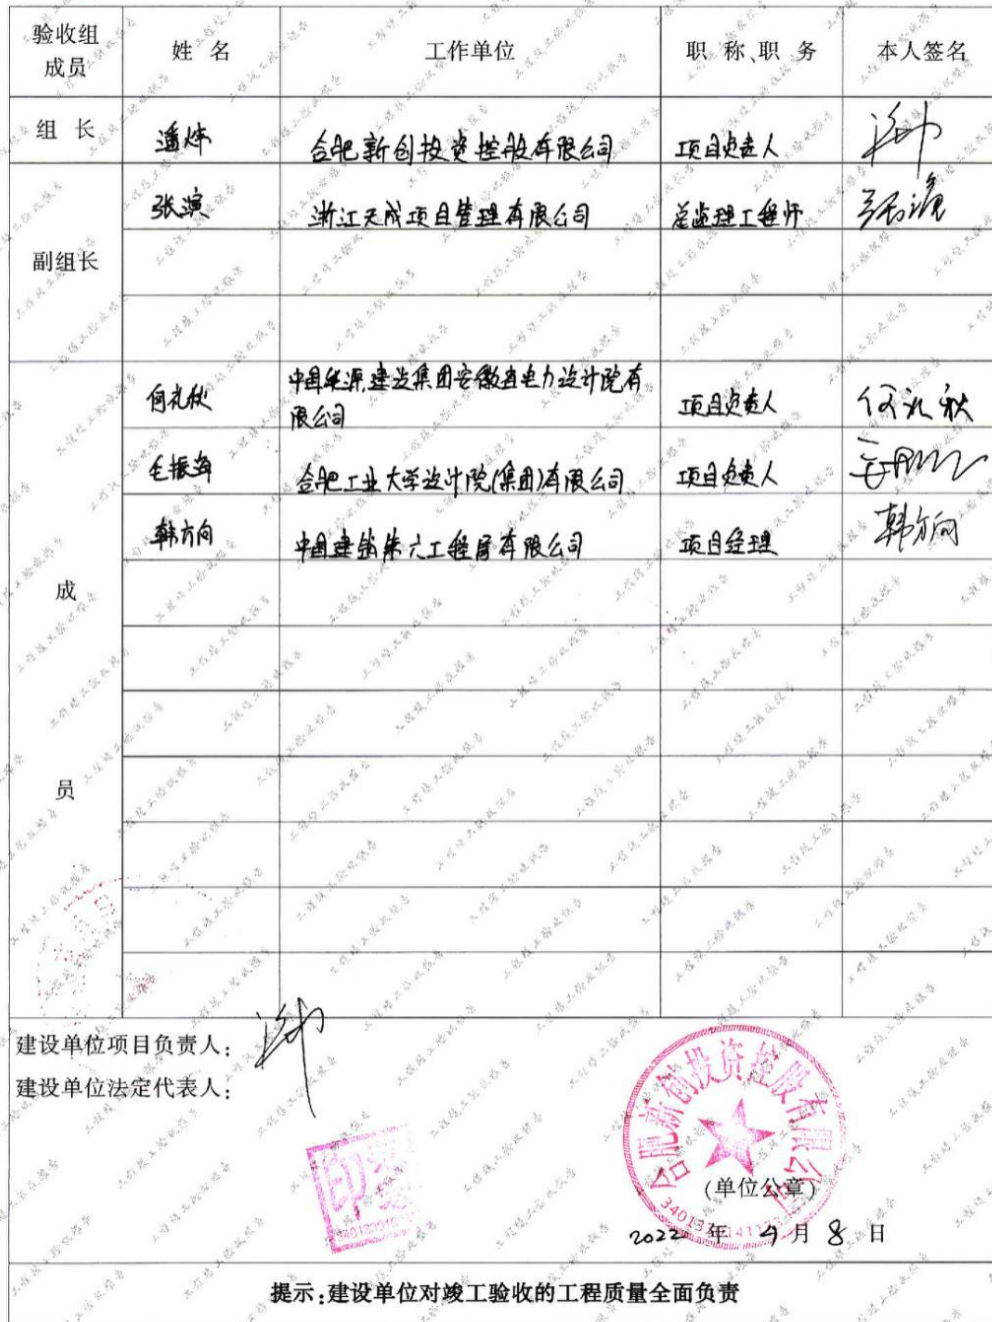 验收组成员 姓 名 工作单位 职 称、职 务 本人签名
组 长 潘炜 合肥新创投资控股有限公司 项目负责人
副组长 张滨 浙江天成项目管理有限公司 总监理工程师 张滨
何礼秋 中国能源建设集团安徽省电力设计院有
限公司 项目负责人 何礼秋
毛振海 合肥工业大学设计院(集团)有限公司 项目负责人
韩方向 中国建筑第六工程局有限公司 项目经理 韩方向
成
员
建设单位项目负责人:
建设单位法定代表人:
合肥新创投资控股有限公司
印
(单位公章)
2022年 9月 8日
提示:建设单位对竣工验收的工程质量全面负责
工程竣工验收报告